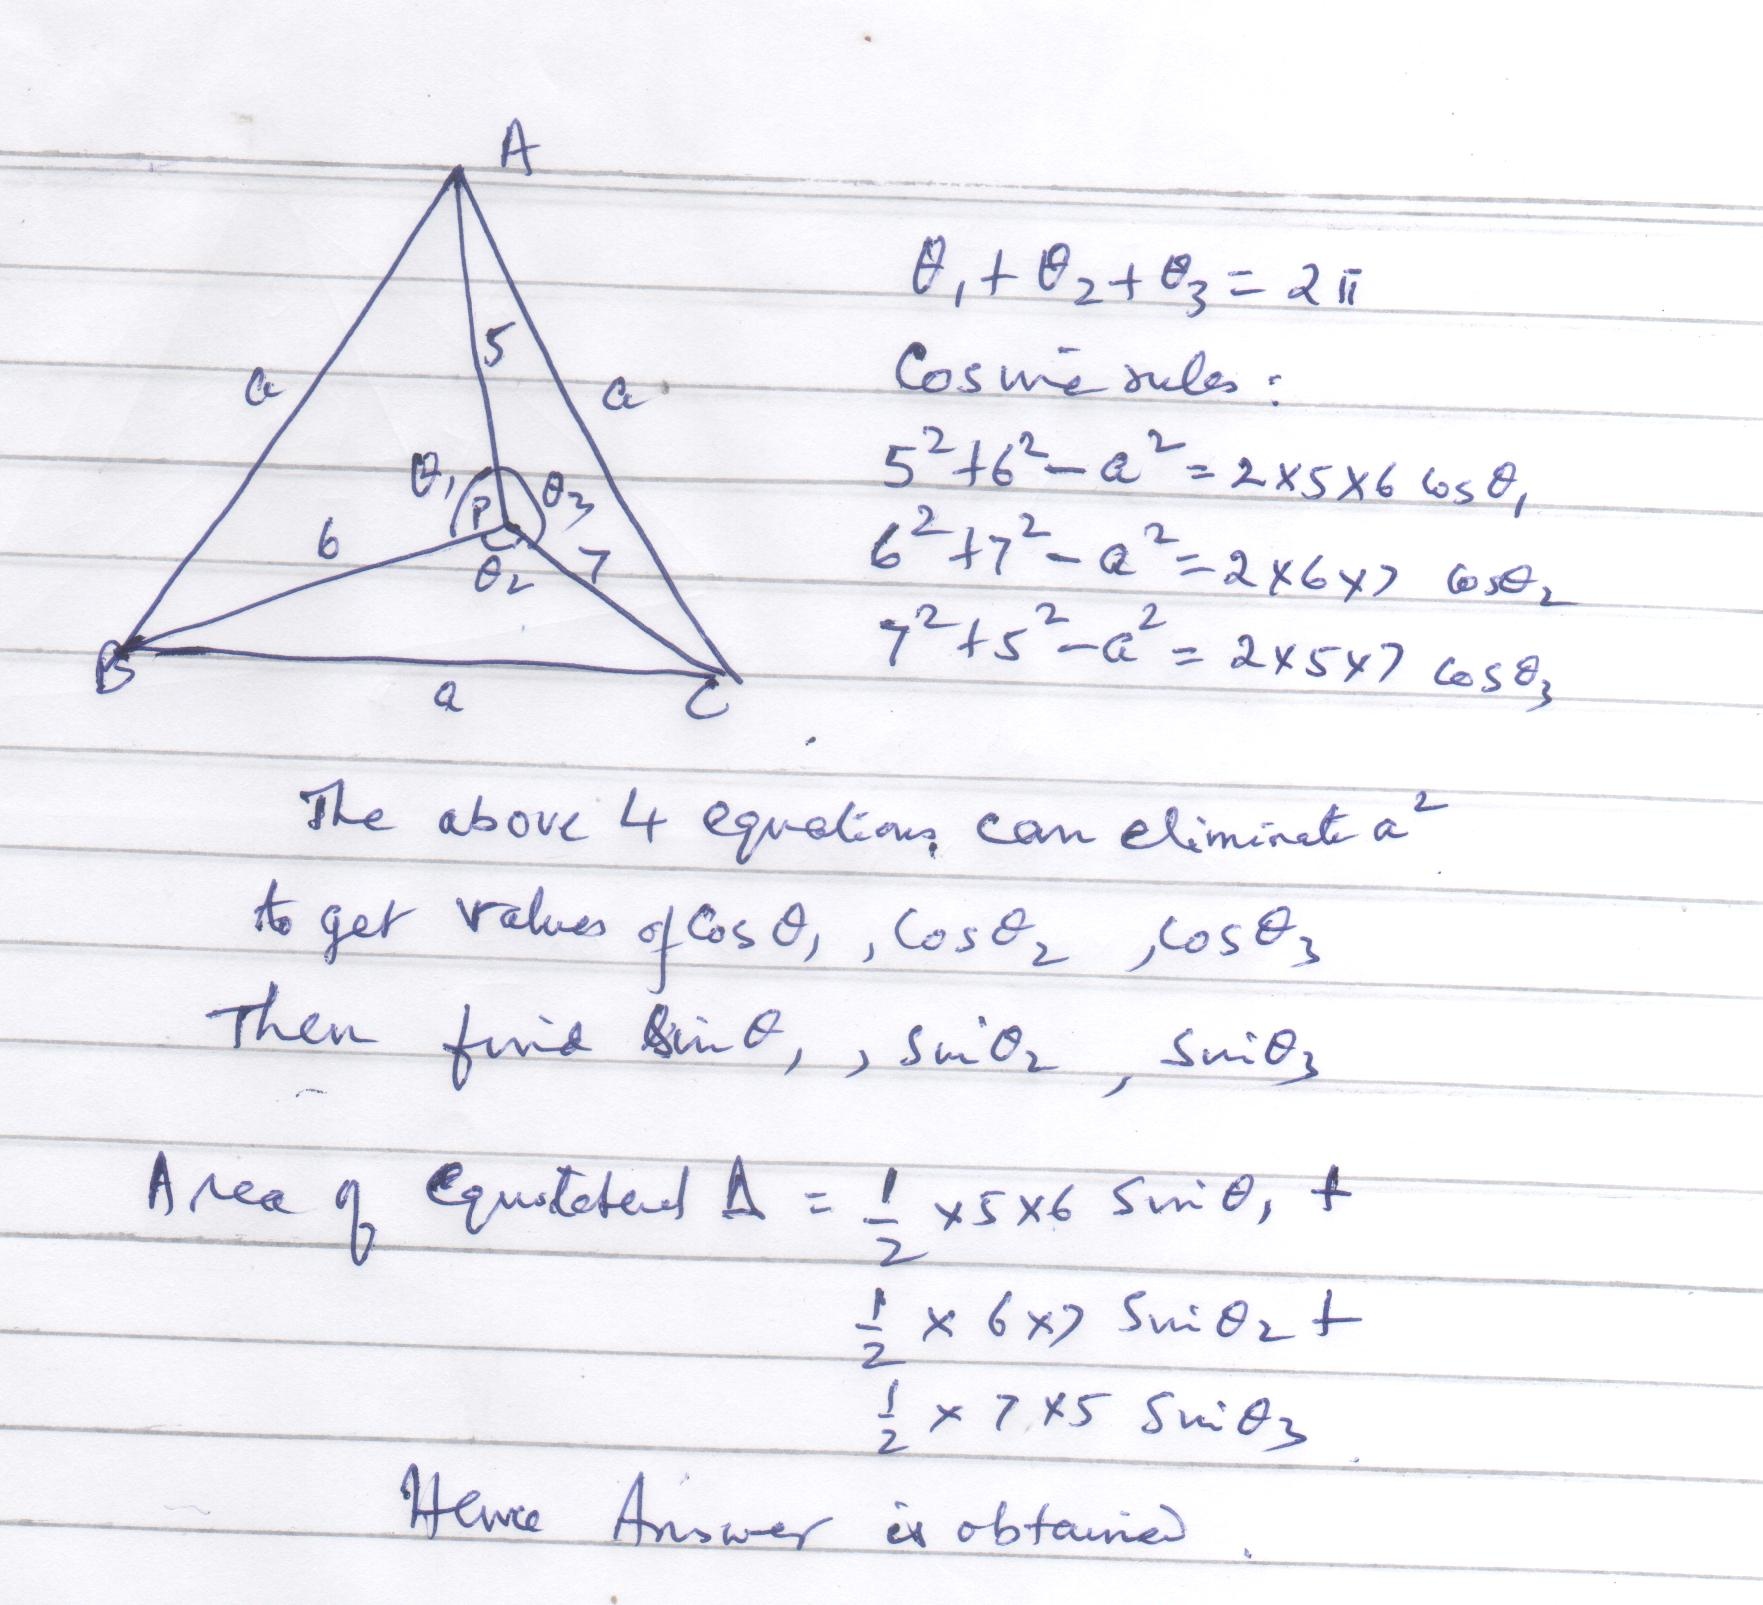 A
θ₁ + θ₂ + θ₃ = 2π
5
Cosine rules :
a
a
5² + 6² − a² = 2×5×6 cos θ₁
θ₁
P
θ₃
6
7
6² + 7² − a² = 2×6×7 cosθ₂
θ₂
7² + 5² − a² = 2×5×7 cosθ₃
B
a
C
The above 4 equations, can eliminate a²
to get values of Cos θ₁ , Cos θ₂ , cos θ₃
Then find Sin θ₁ , Sin θ₂ , Sin θ₃
Area of Equilateral Δ = 1/2 ×5×6 Sin θ₁ +
1/2 × 6×7 Sin θ₂ +
1/2 × 7×5 Sin θ₃
Hence Answer is obtained.